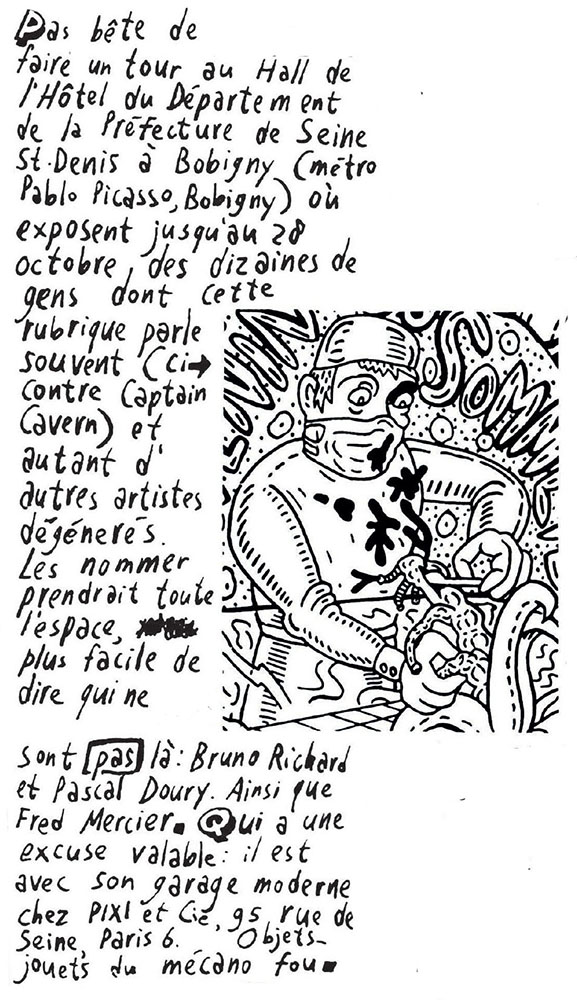 Pas bête de
faire un tour au Hall de
l'Hôtel du Département
de la Préfecture de Seine
St.Denis à Bobigny (métro
Pablo Picasso, Bobigny) où
exposent jusqu'au 28
octobre, des dizaines de
gens dont cette
rubrique parle
souvent (ci→
contre Captain
Cavern) et
autant d'
autres artistes
dégénerés.
Les nommer
prendrait toute
l'espace,
plus facile de
dire qui ne
sont pas là: Bruno Richard
et Pascal Doury. Ainsi que
Fred Mercier. Qui a une
excuse valable: il est
avec son garage moderne
chez PIXI et Cie, 95 rue de
Seine, Paris 6. Objets-
jouets du mécano fou